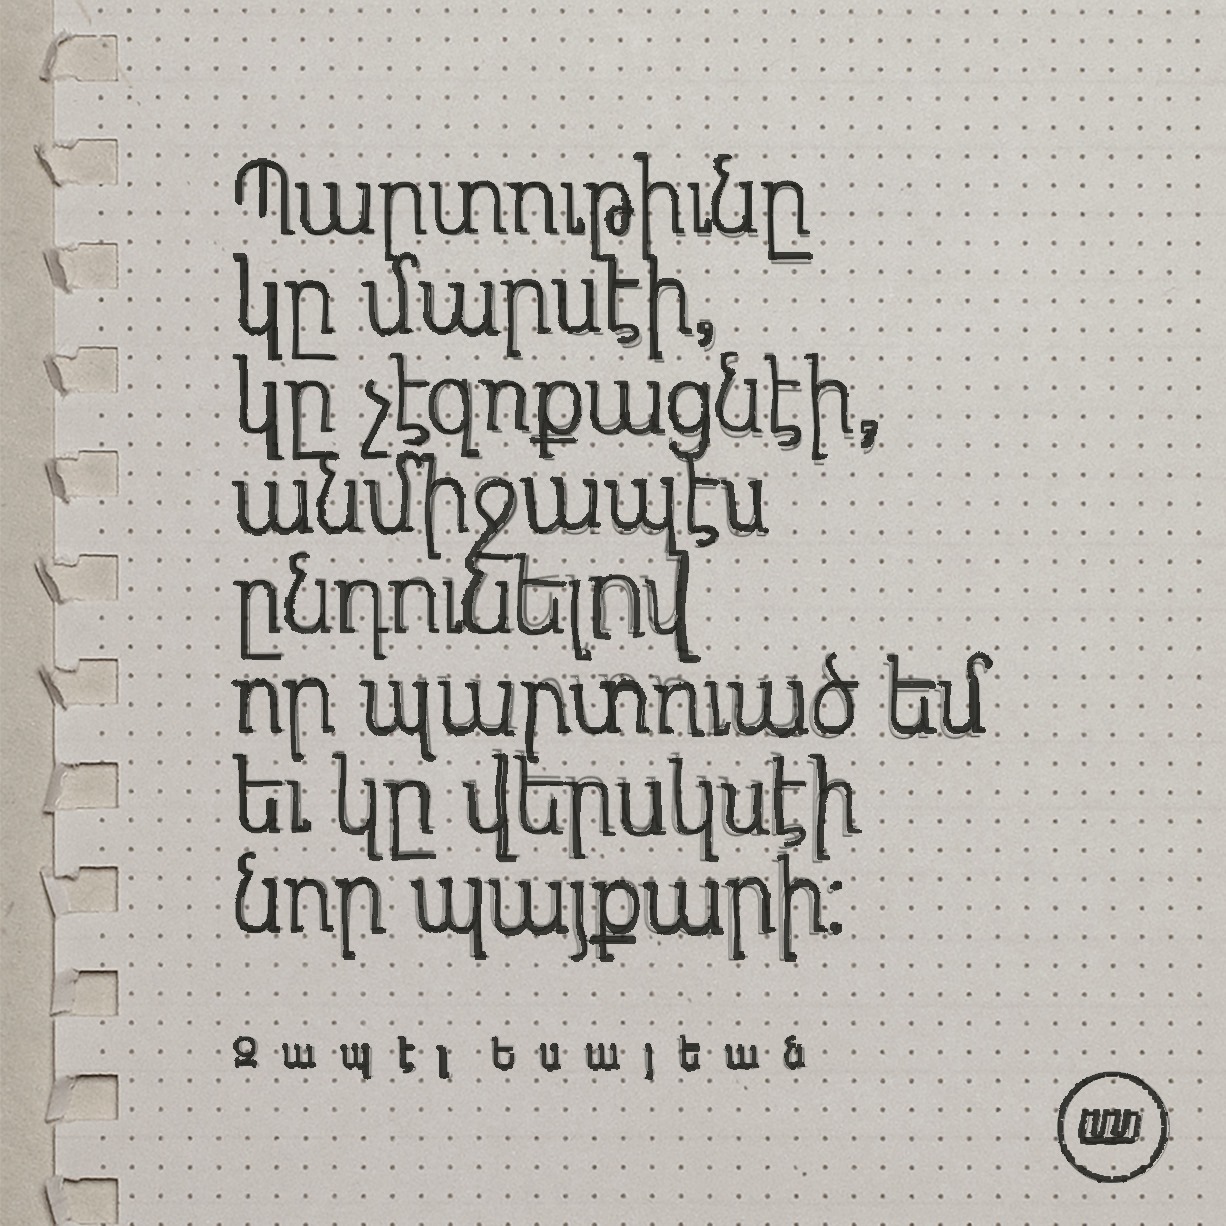 Պարտութիւնը
կը մարսէի,
կը չէզոքացնէի,
անմիջապէս
ընդունելով
որ պարտուած եմ
եւ կը վերսկսէի
նոր պայքարի:
Զապէլ Եսայեան